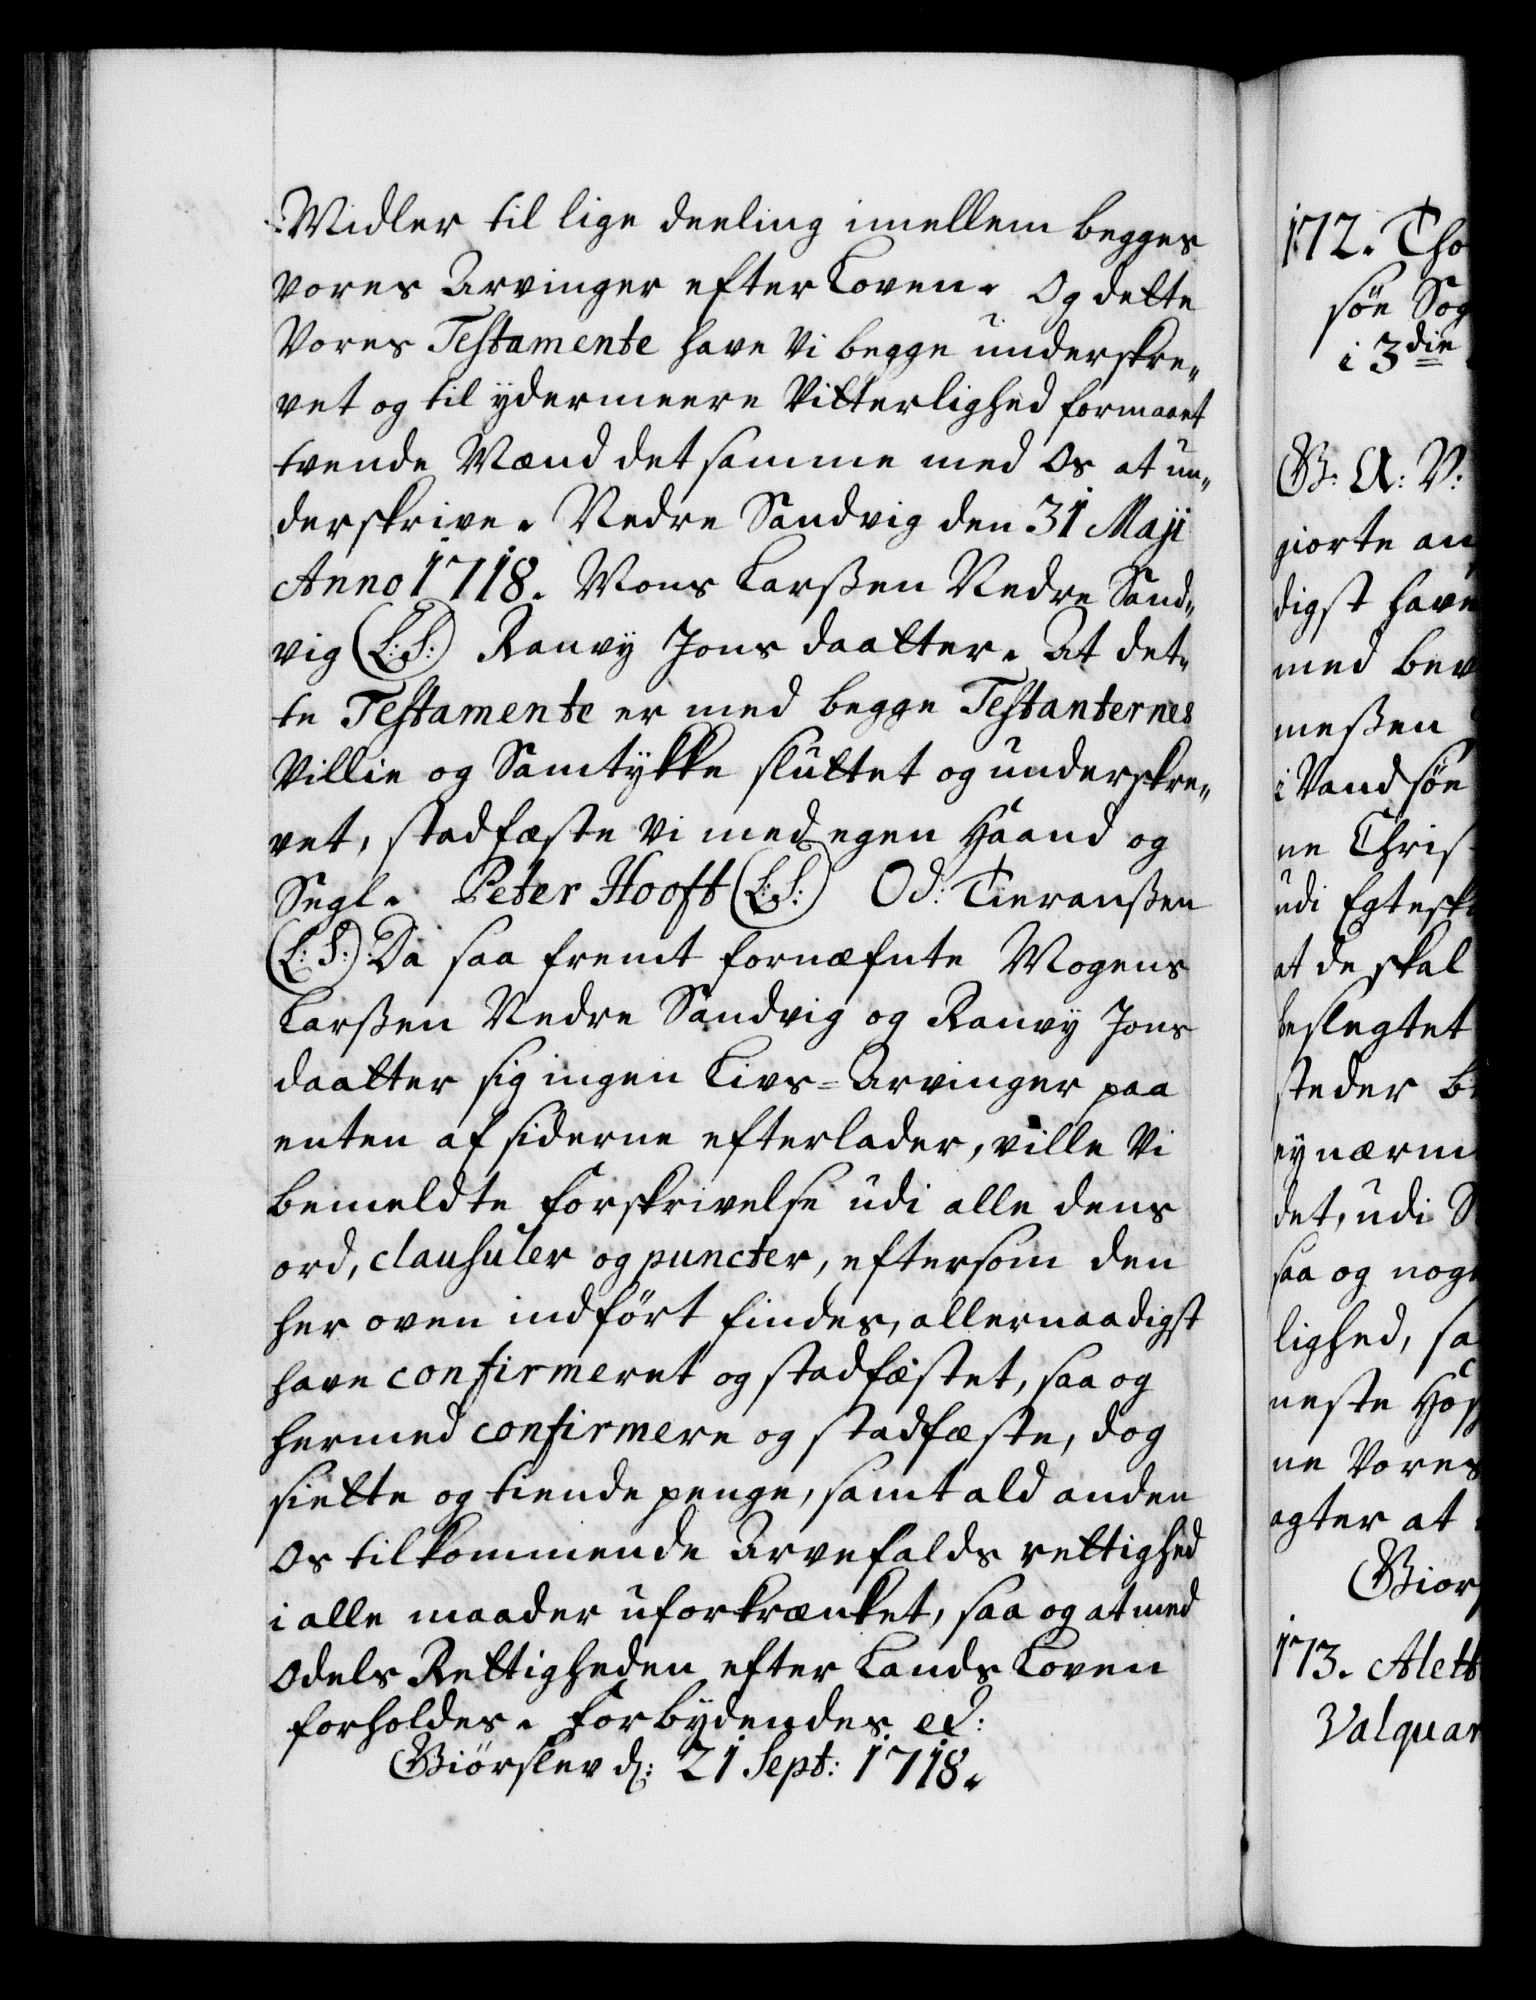 Midler til lige deeling imellem begges
vores Arvinger efter Loven. Og dette
Vores Testamente have vi begge underskre„
vet og til ydermeere Vitterlighed formaaet
tvende Mænd det samme med Os at un„
derskrive. Nedre Sandvig den 31 Maji
Anno 1718. Mons Larßen Nedre Sand„
vig (L:S:) Ranvy Jons daatter. At det„
te Testamente er med begge Testanternes
Villie og Samtykke sluttet og underskre„
vet, stadfæste vi med egen Haand og
Segl. Peter Hooft (L:S:) Od: Tieranßen
(L:S:) Da saa fremt fornæfnte Mogens
Larßen Nedre Sandvig og Ranvy Jons
daatter sig ingen Livs-Arvinger paa
enten af siderne efterlader, ville Vi
bemeldte forskrivelse udi alle dens
ord, clausuler og puncter, eftersom den
her oven indført findes, allernaadigst
have confirmeret og stadfæstet, saa og
hermed confirmere og stadfæste, dog
siette og tiende penge, samt ald anden
Os tilkommende Arvefalds rettighed
i alle maader uforkrænket, saa og at med
Odels Rettigheden efter Lands Loven
forholdes. Forbydendes ec:
Giørslev d: 21 Sept: 1718.
172. Tho
søe Sog
i 3die
G. A: V:
giorte an
digst have
med bev
meßen
i Vandsøe
ne Chris
udi Egtesk
at de skal
beslegtet
steder b
ey nærm
det, udi S
saa og nog
lighed, sa
neste Høy
ne Vores
agter at
Giør
173. Alett
Valquar